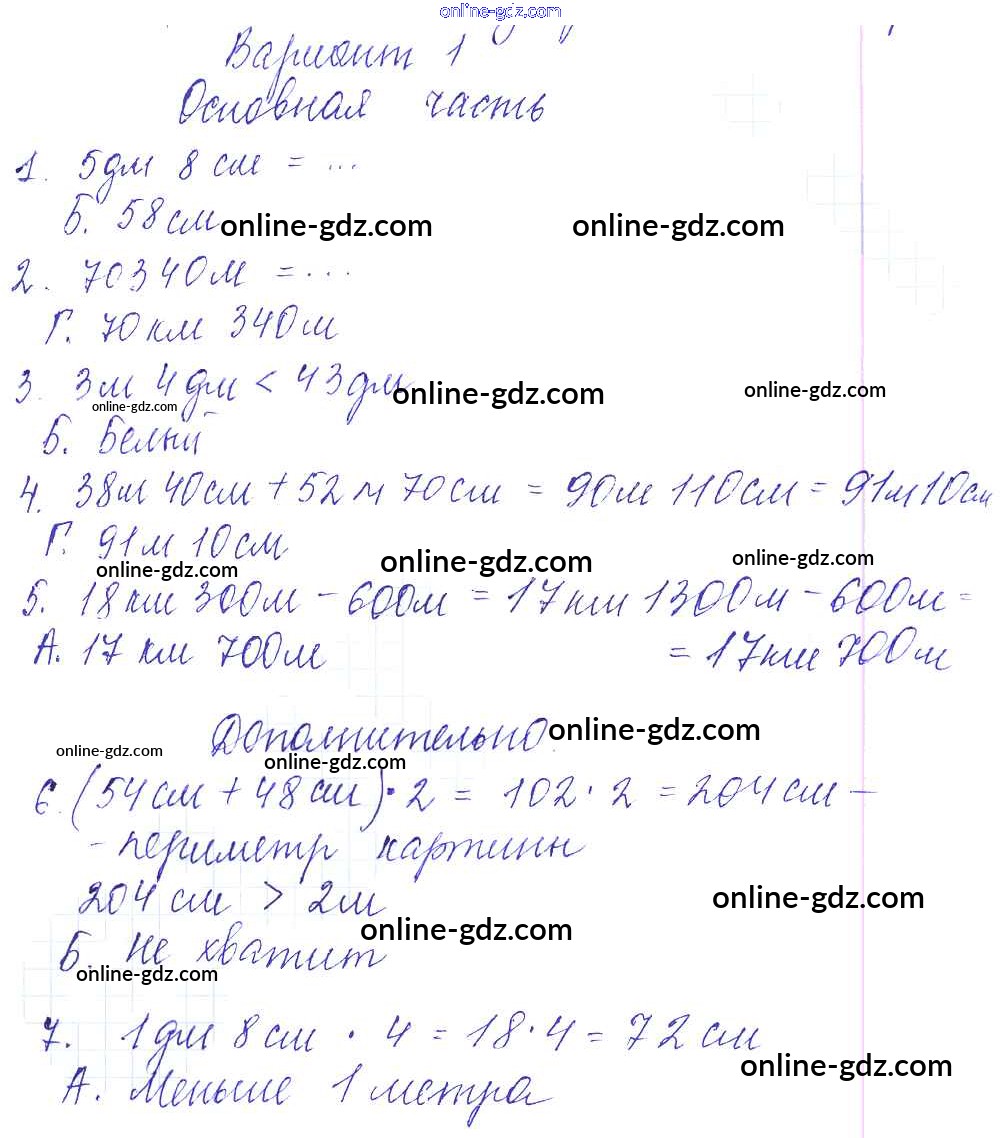 online-gdz.com
Вариант 1
Основная часть
1. 5дм 8 см = ...
Б. 58 см
online-gdz.com online-gdz.com
2. 70340м = ...
Г. 70 км 340м
3. 3м 4 дм < 43 дм
online-gdz.com online-gdz.com
online-gdz.com
Б. Белый
4. 38м 40см + 52 м 70см = 90м 110см = 91м10см
Г. 91 м 10 см
online-gdz.com online-gdz.com online-gdz.com
5. 18км 300м - 600м = 17км 1300м - 600м =
А. 17 км 700м = 17км 700м
Дополнительно.
online-gdz.com
online-gdz.com online-gdz.com
6. (54см + 48 см) · 2 = 102 · 2 = 204 см -
- периметр картины
204 см > 2м
online-gdz.com
online-gdz.com
Б. Не хватит
online-gdz.com
7. 1дм 8 см · 4 = 18 · 4 = 72 см
online-gdz.com
А. Меньше 1 метра